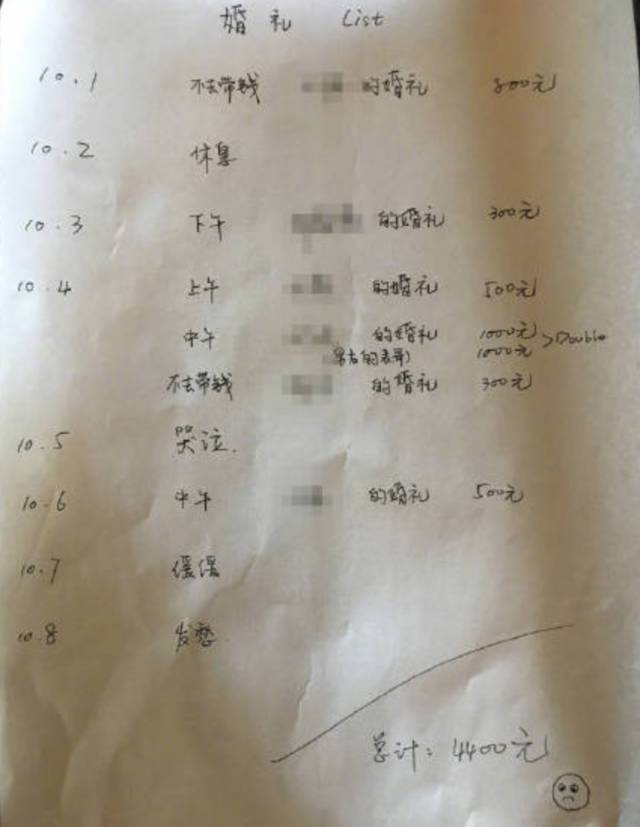 婚礼 List
10.1 不去带钱 的婚礼 800元
10.2 休息
10.3 下午 的婚礼 300元
10.4 上午 的婚礼 500元
中午 的婚礼 1000元 >Double
室友的表哥) 1000元
不去带钱 的婚礼 300元
10.5 哭泣.
10.6 中午 的婚礼 500元
10.7 缓缓
10.8 发愁.
总计: 4400元